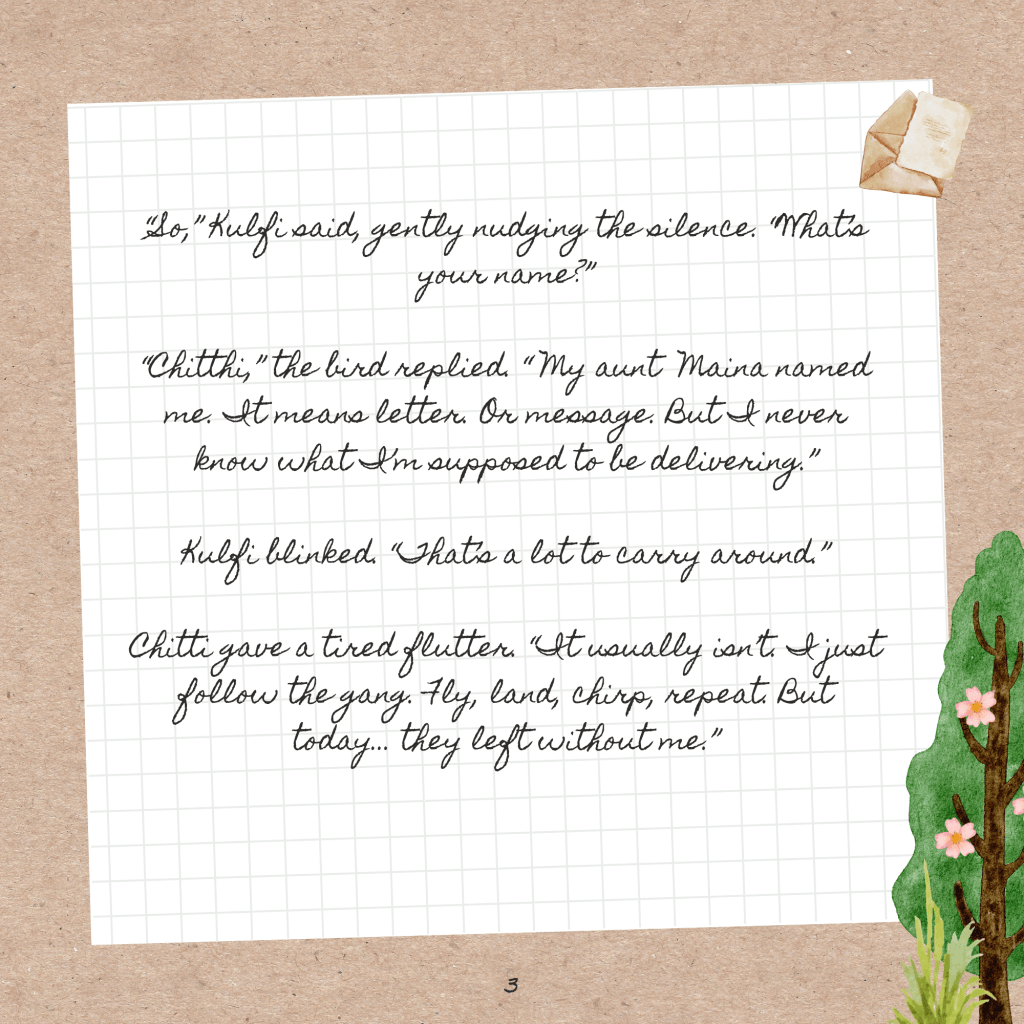 "So," Kulfi said, gently nudging the silence. "What's
your name?"
"Chitthi," the bird replied. "My aunt Maina named
me. It means letter. Or message. But I never
know what I'm supposed to be delivering."
Kulfi blinked. "That's a lot to carry around."
Chitti gave a tired flutter. "It usually isn't. I just
follow the gang. Fly, land, chirp, repeat. But
today... they left without me."
3